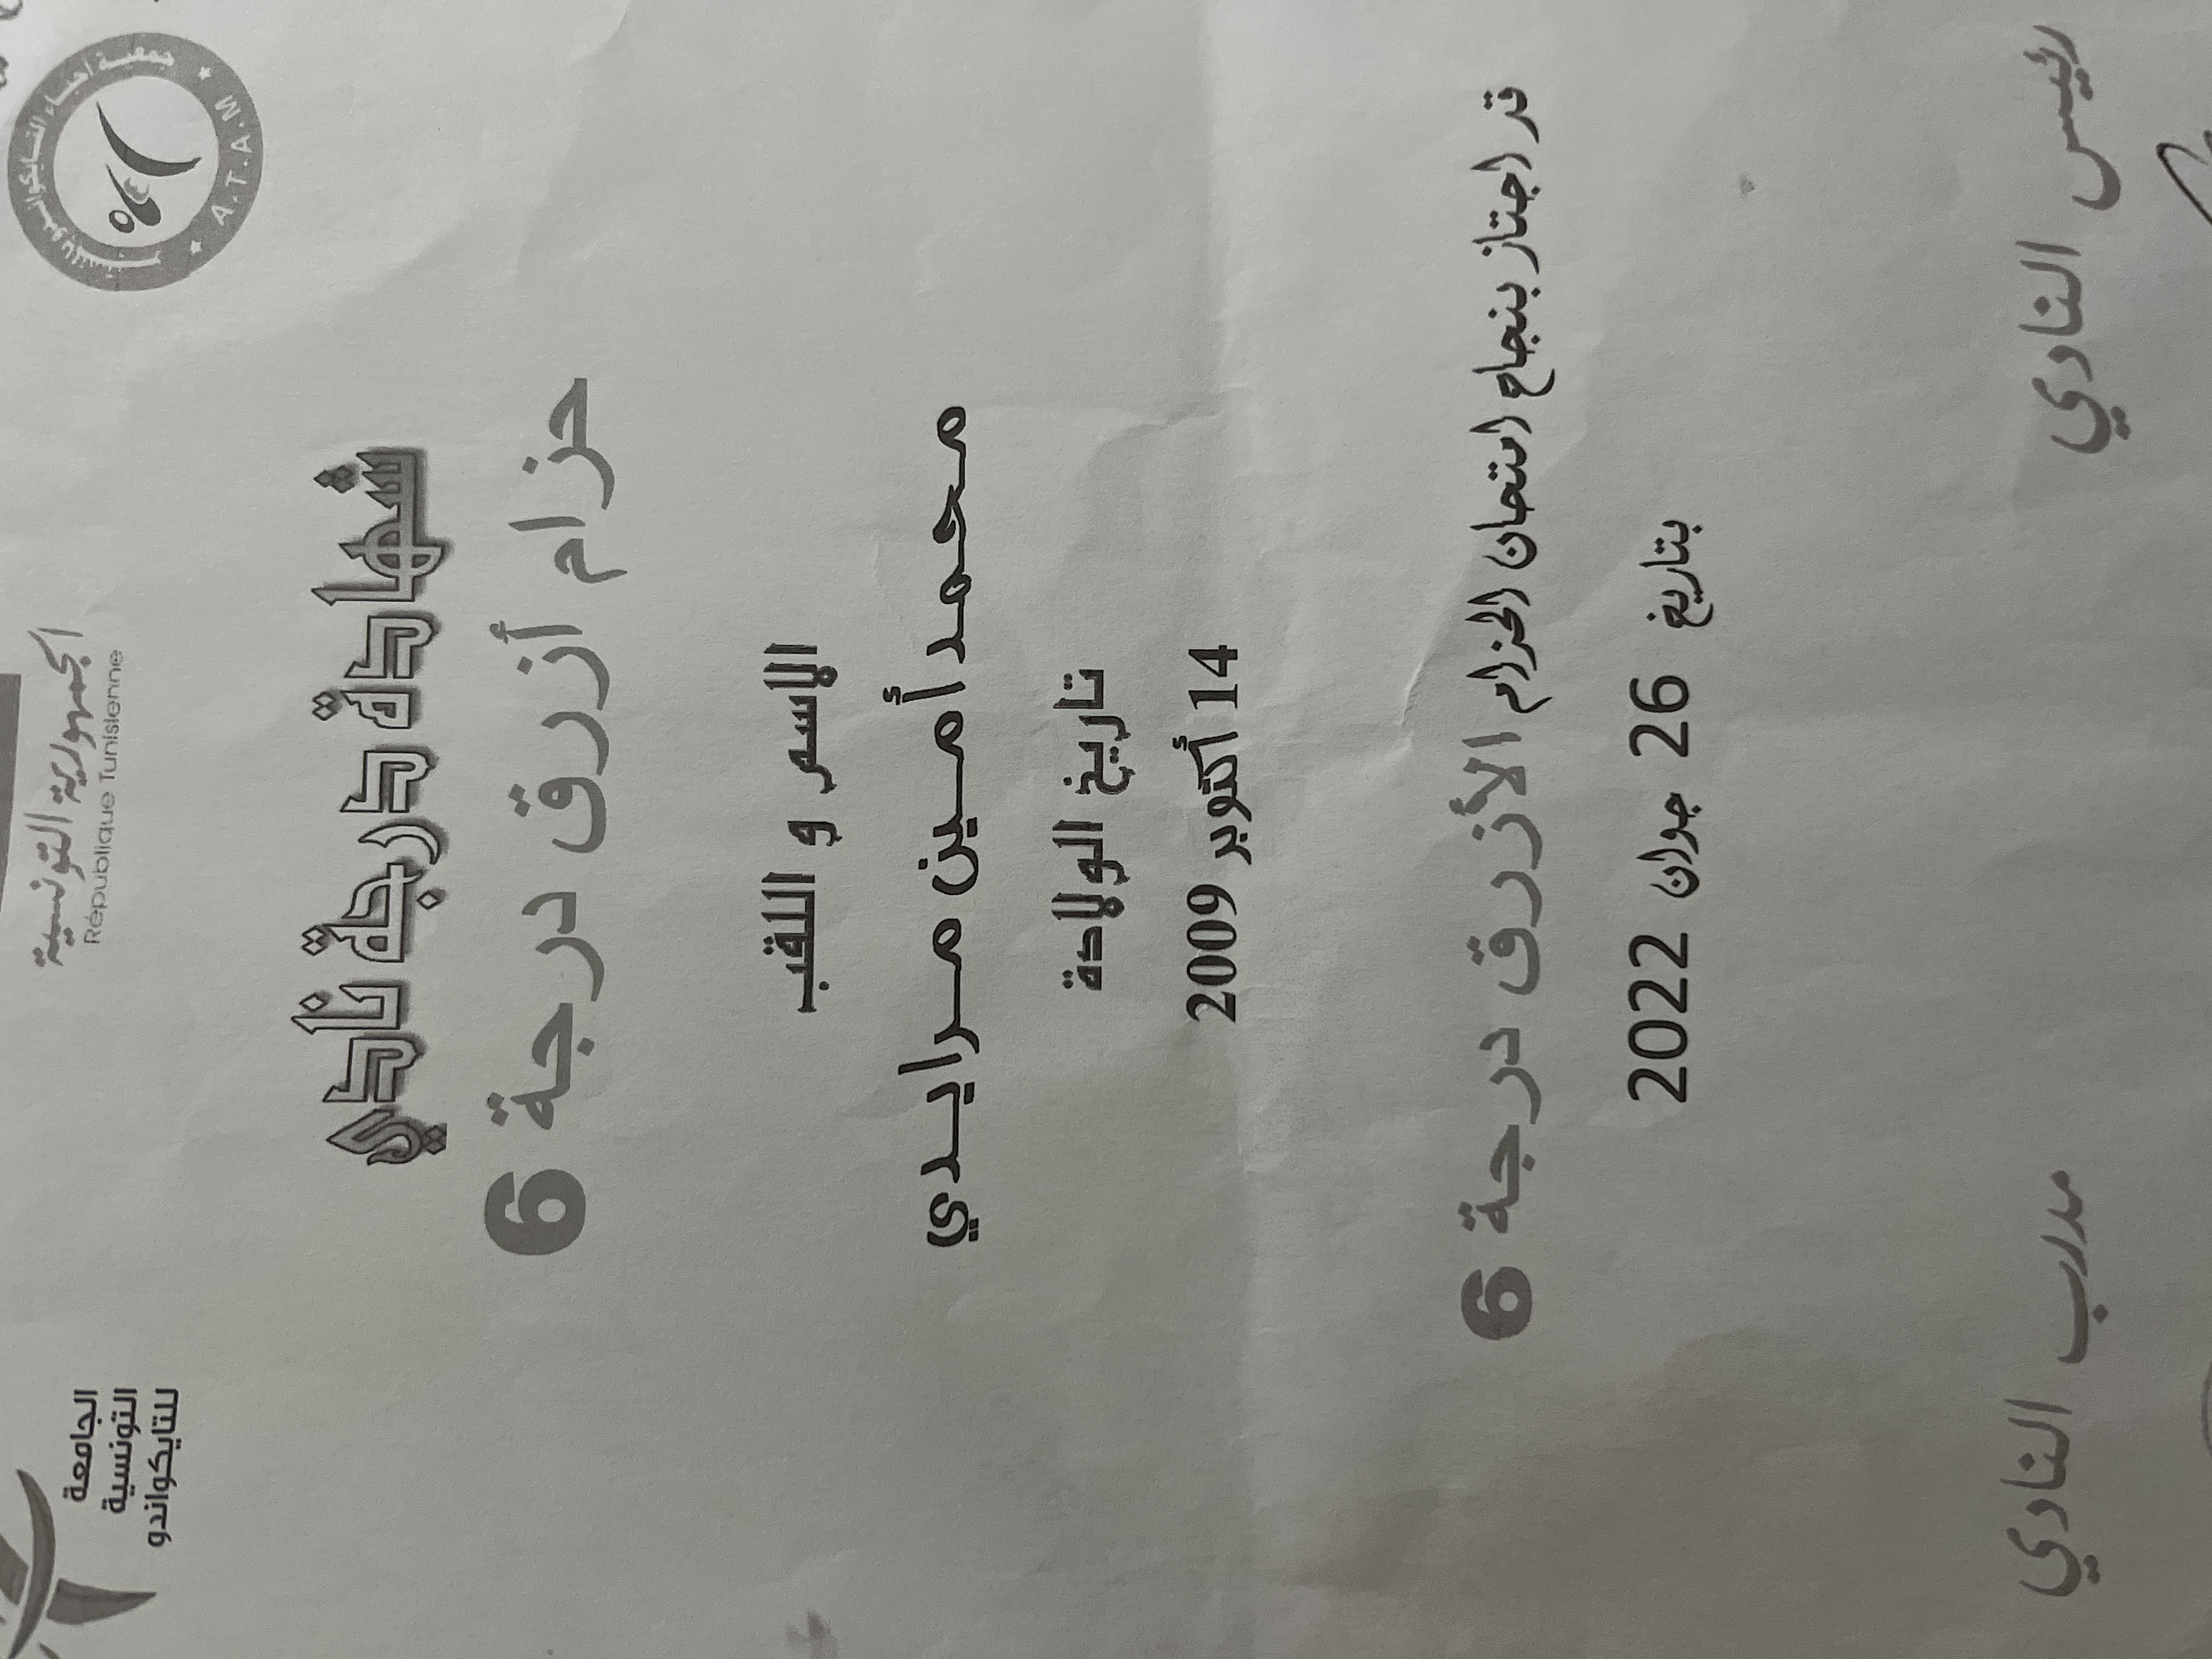 الجمهورية التونسية
République Tunisienne
الجامعة
التونسية
للتايكواندو
جمعية أحباء التايكوندو
A.T.A.M
شهادة درجة نادي
حزام أزرق درجة 6
الاسم و اللقب
محمد أمين مرايدي
تاريخ الولادة
14 أكتوبر 2009
قد اجتاز بنجاح امتحان الحزام الأزرق درجة 6
بتاريخ 26 جوان 2022
رئيس النادي
مدرب النادي